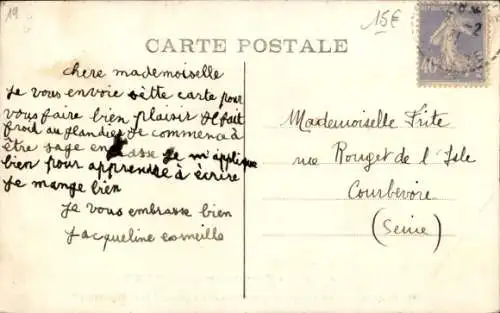 19
15€
CARTE POSTALE
40
chere mademoiselle
Je vous envoie cette carte pour
vous faire bien plaisir Il fait
froid au glandier Je commence à
être sage en classe Je m'applique
bien pour apprendre à écrire
Je mange bien
Je vous embrasse bien
Jacqueline
Mademoiselle Frite
rue Rouget de l'Isle
Courbevoie
(Seine)